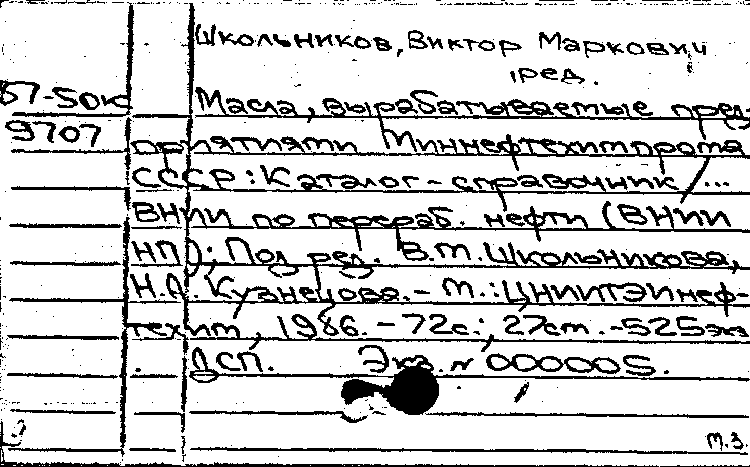 Школьников, Виктор Маркович
ред.
87-5дк Масла, вырабатываемые пред-
9707 приятиями Миннефтехимпрома
СССР: Каталог-справочник / ...
ВНИИ по перераб. нефти (ВНИИ
НП); Под ред. В.М. Школьникова,
Н.А. Кузнецова. - М.: ЦНИИТЭИнеф-
техим, 1986. - 72с.; 27см. - 525экз
. ДСП. Экз. № 000005.
М.З.